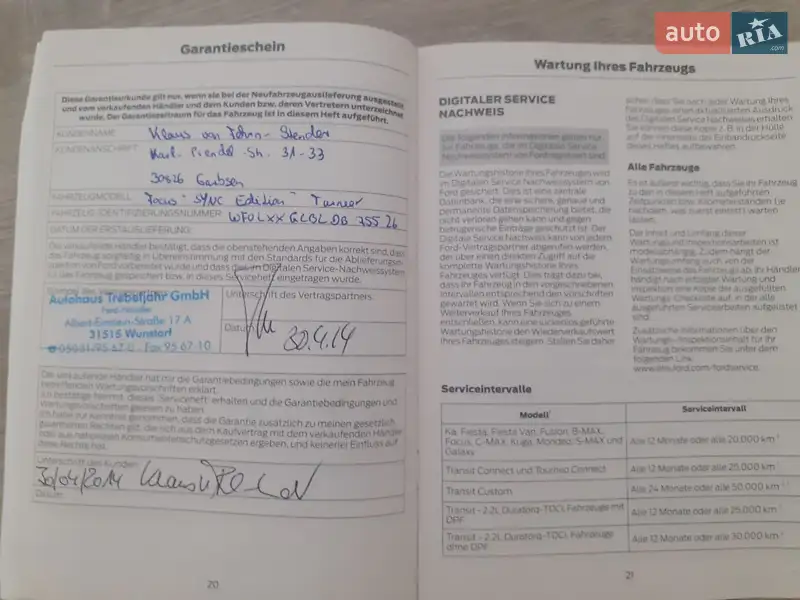 auto RIA.com
Garantieschein
Diese Garantieurkunde gilt nur, wenn sie bei der Neufahrzeugauslieferung ausgestellt
und vom verkaufenden Händler und dem Kunden bzw. deren Vertretern unterzeichnet
wurde. Der Garantiezeitraum für das Fahrzeug ist in diesem Heft aufgeführt.
KUNDENNAME Klaus von
KUNDENANSCHRIFT Karl 31-33
30826 Garbsen
FAHRZEUGMODELL Focus "SYNC Edition" Turnier
FAHRZEUG-IDENTIFIZIERUNGSNUMMER
DATUM DER ERSTAUSLIEFERUNG
Der verkaufende Händler bestätigt, dass die obenstehenden Angaben korrekt sind, dass
das Fahrzeug sorgfältig in Übereinstimmung mit den Standards für die Ablieferungs-
von Ford vorbereitet wurde und dass dies im Digitalen Service-Nachweissystem
bzw. in dieses Serviceheft eingetragen wurde.
Autohaus Trebeljahr GmbH
Ford-Händler
Albert-Einstein-Straße 17 A
31515 Wunstorf
Fax 95 67 10
Unterschrift des Vertragspartners
Datum 30.4.14
Der verkaufende Händler hat mir die Garantiebedingungen sowie die mein Fahrzeug
betreffenden Wartungsvorschriften erklärt.
Ich bestätige hiermit, dieses Serviceheft erhalten und die Garantiebedingungen und
Wartungsvorschriften gelesen zu haben.
Ich habe zur Kenntnis genommen, dass die Garantie zusätzlich zu meinen gesetzlich
Rechten gilt, die sich aus dem Kaufvertrag mit dem verkaufenden Händler
oder aus nationalen Konsumentenschutzgesetzen ergeben, und keinerlei Einfluss auf
diese Rechte hat.
Unterschrift des Kunden
30/04/2014
Datum
20
Wartung Ihres Fahrzeugs
DIGITALER SERVICE
NACHWEIS
Die folgenden Informationen gelten nur
für Fahrzeuge, die im Digitalen Service
Nachweissystem von Ford registriert sind.
Die Wartungshistorie Ihres Fahrzeugs wird
im Digitalen Service Nachweissystem von
Ford gesichert. Dies ist eine zentrale
Datenbank, die eine sichere, genaue und
permanente Datenspeicherung bietet, die
nicht verloren gehen kann und gegen
betrügerische Einträge geschützt ist. Der
Digitale Service Nachweis kann von jedem
Ford-Vertragspartner abgerufen werden,
der über einen direkten Zugriff auf die
komplette Wartungshistorie Ihres
Fahrzeuges verfügt. Dies trägt dazu bei,
dass Ihr Fahrzeug in den vorgeschriebenen
Intervallen entsprechend den Vorschriften
gewartet wird. Wenn Sie sich zu einem
Weiterverkauf Ihres Fahrzeugs
entschließen, kann eine lückenlos geführte
Wartungshistorie den Wiederverkaufswert
Ihres Fahrzeugs steigern. Stellen Sie daher
sicher, dass Sie nach jeder Wartung Ihres
Fahrzeugs einen aktualisierten Ausdruck
des Digitalen Service Nachweises erhalten.
Sie können diese Kopie z. B. in der Hülle
auf der Innenseite des Einbandrückseite
dieses Heftes aufbewahren.
Alle Fahrzeuge
Es ist äußerst wichtig, dass Sie Ihr Fahrzeug
zu den in diesem Heft aufgeführten
Zeitpunkten bzw. Kilometerständen (je
nachdem, was zuerst eintritt) warten
lassen.
Der Inhalt und Umfang dieser
Wartung und Inspektionsarbeiten ist
modellabhängig. Zudem hängt der
Wartungsumfang auch von der
Einsatzweise des Fahrzeugs ab. Ihr Händler
händigt nach erfolgter Wartung und
Inspektion eine Kopie der ausgefüllten
Wartungs-Checkliste aus, in der alle
ausgeführten Servicearbeiten aufgelistet
sind.
Zusätzliche Informationen über den
Wartungs-/Inspektionsinhalt für Ihr
Fahrzeug bekommen Sie unter dem
folgenden Link:
Serviceintervalle
Modell Serviceintervall
Ka, Fiesta, Fiesta Van, Fusion, B-MAX,
Focus, C-MAX, Kuga, Mondeo, S-MAX und
Galaxy Alle 12 Monate oder alle 20.000 km
Transit Connect und Tourneo Connect Alle 12 Monate oder alle 25.000 km
Transit Custom Alle 24 Monate oder alle 50.000 km
Transit - 2.2L Duratorq-TDCi, Fahrzeuge mit
DPF Alle 12 Monate oder alle 25.000 km
Transit - 2.2L Duratorq-TDCi, Fahrzeuge
ohne DPF Alle 12 Monate oder alle 30.000 km
21